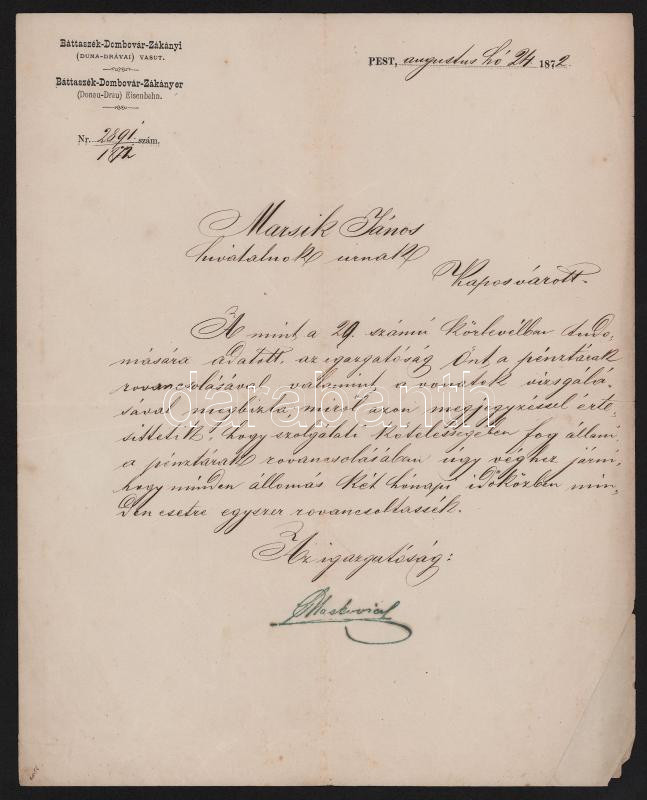 Báttaszék-Dombovár-Zákányi
(DUNA-DRÁVAI) VASUT.
Báttaszék-Dombovár-Zákányer
(Donau-Drau) Eisenbahn.
Nr. 2891. szám.
1872
PEST, augustus hó 24 1872
Marsik János
hivatalnok urnak
Kaposvárott.
A mint a 29. számú körlevélben tudo-
mására adatott, az igazgatóság Önt a pénztárak
rovancsolásával, valamint a vonatok vizsgálá-
sával megbizta, miről azon megjegyzéssel érte-
sittetik, hogy szolgálati kötelességében fog állani
a pénztárak rovancsolásában úgy véghez járni,
hogy minden állomás két hónapi időközben min-
den esetre egyszer rovancsoltassék.
Az igazgatóság:
darabanth